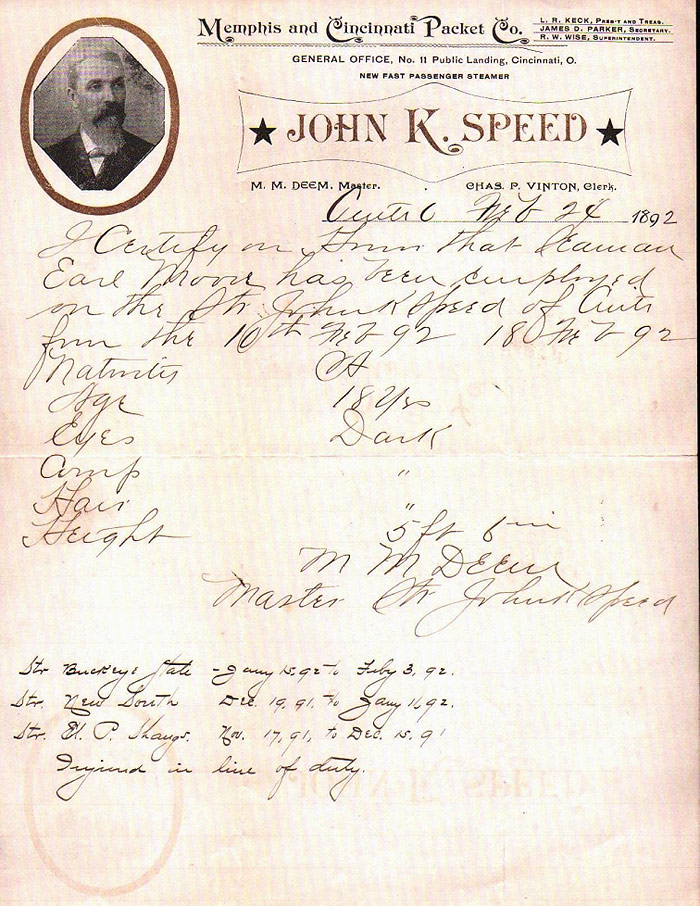 Memphis and Cincinnati Packet Co.
L. R. KECK, PRES'T AND TREAS.
JAMES D. PARKER, SECRETARY.
R. W. WISE, SUPERINTENDENT.
GENERAL OFFICE, No. 11 Public Landing, Cincinnati, O.
NEW FAST PASSENGER STEAMER
★ JOHN K. SPEED ★
M. M. DEEM, Master. CHAS. P. VINTON, Clerk.
Cinti O Feb 24 1892
I Certify on Honor that Seaman
Earl Moore has been employed
on the Str John K Speed of Cinti
from the 10th Feb 92 18 Feb 92
Nativity
Age 18 Yrs
Eyes Dark
Comp "
Hair "
Height 5 ft 6 in
M M Deem
Master Str John K Speed
Str. Buckeye State - Jany 15, 92 to Feby 3, 92.
Str. New South Dec. 19, 91, to Jany 1, 92.
Str. P. Nov. 17, 91, to Dec. 15, 91
Injured in line of duty.